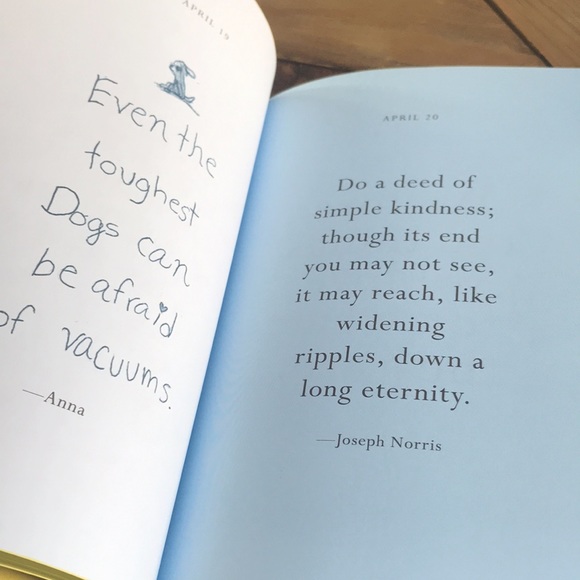 APRIL 19
Even the
toughest
Dogs can
be afraid
of vacuums.
—Anna
APRIL 20
Do a deed of
simple kindness;
though its end
you may not see,
it may reach, like
widening
ripples, down a
long eternity.
—Joseph Norris